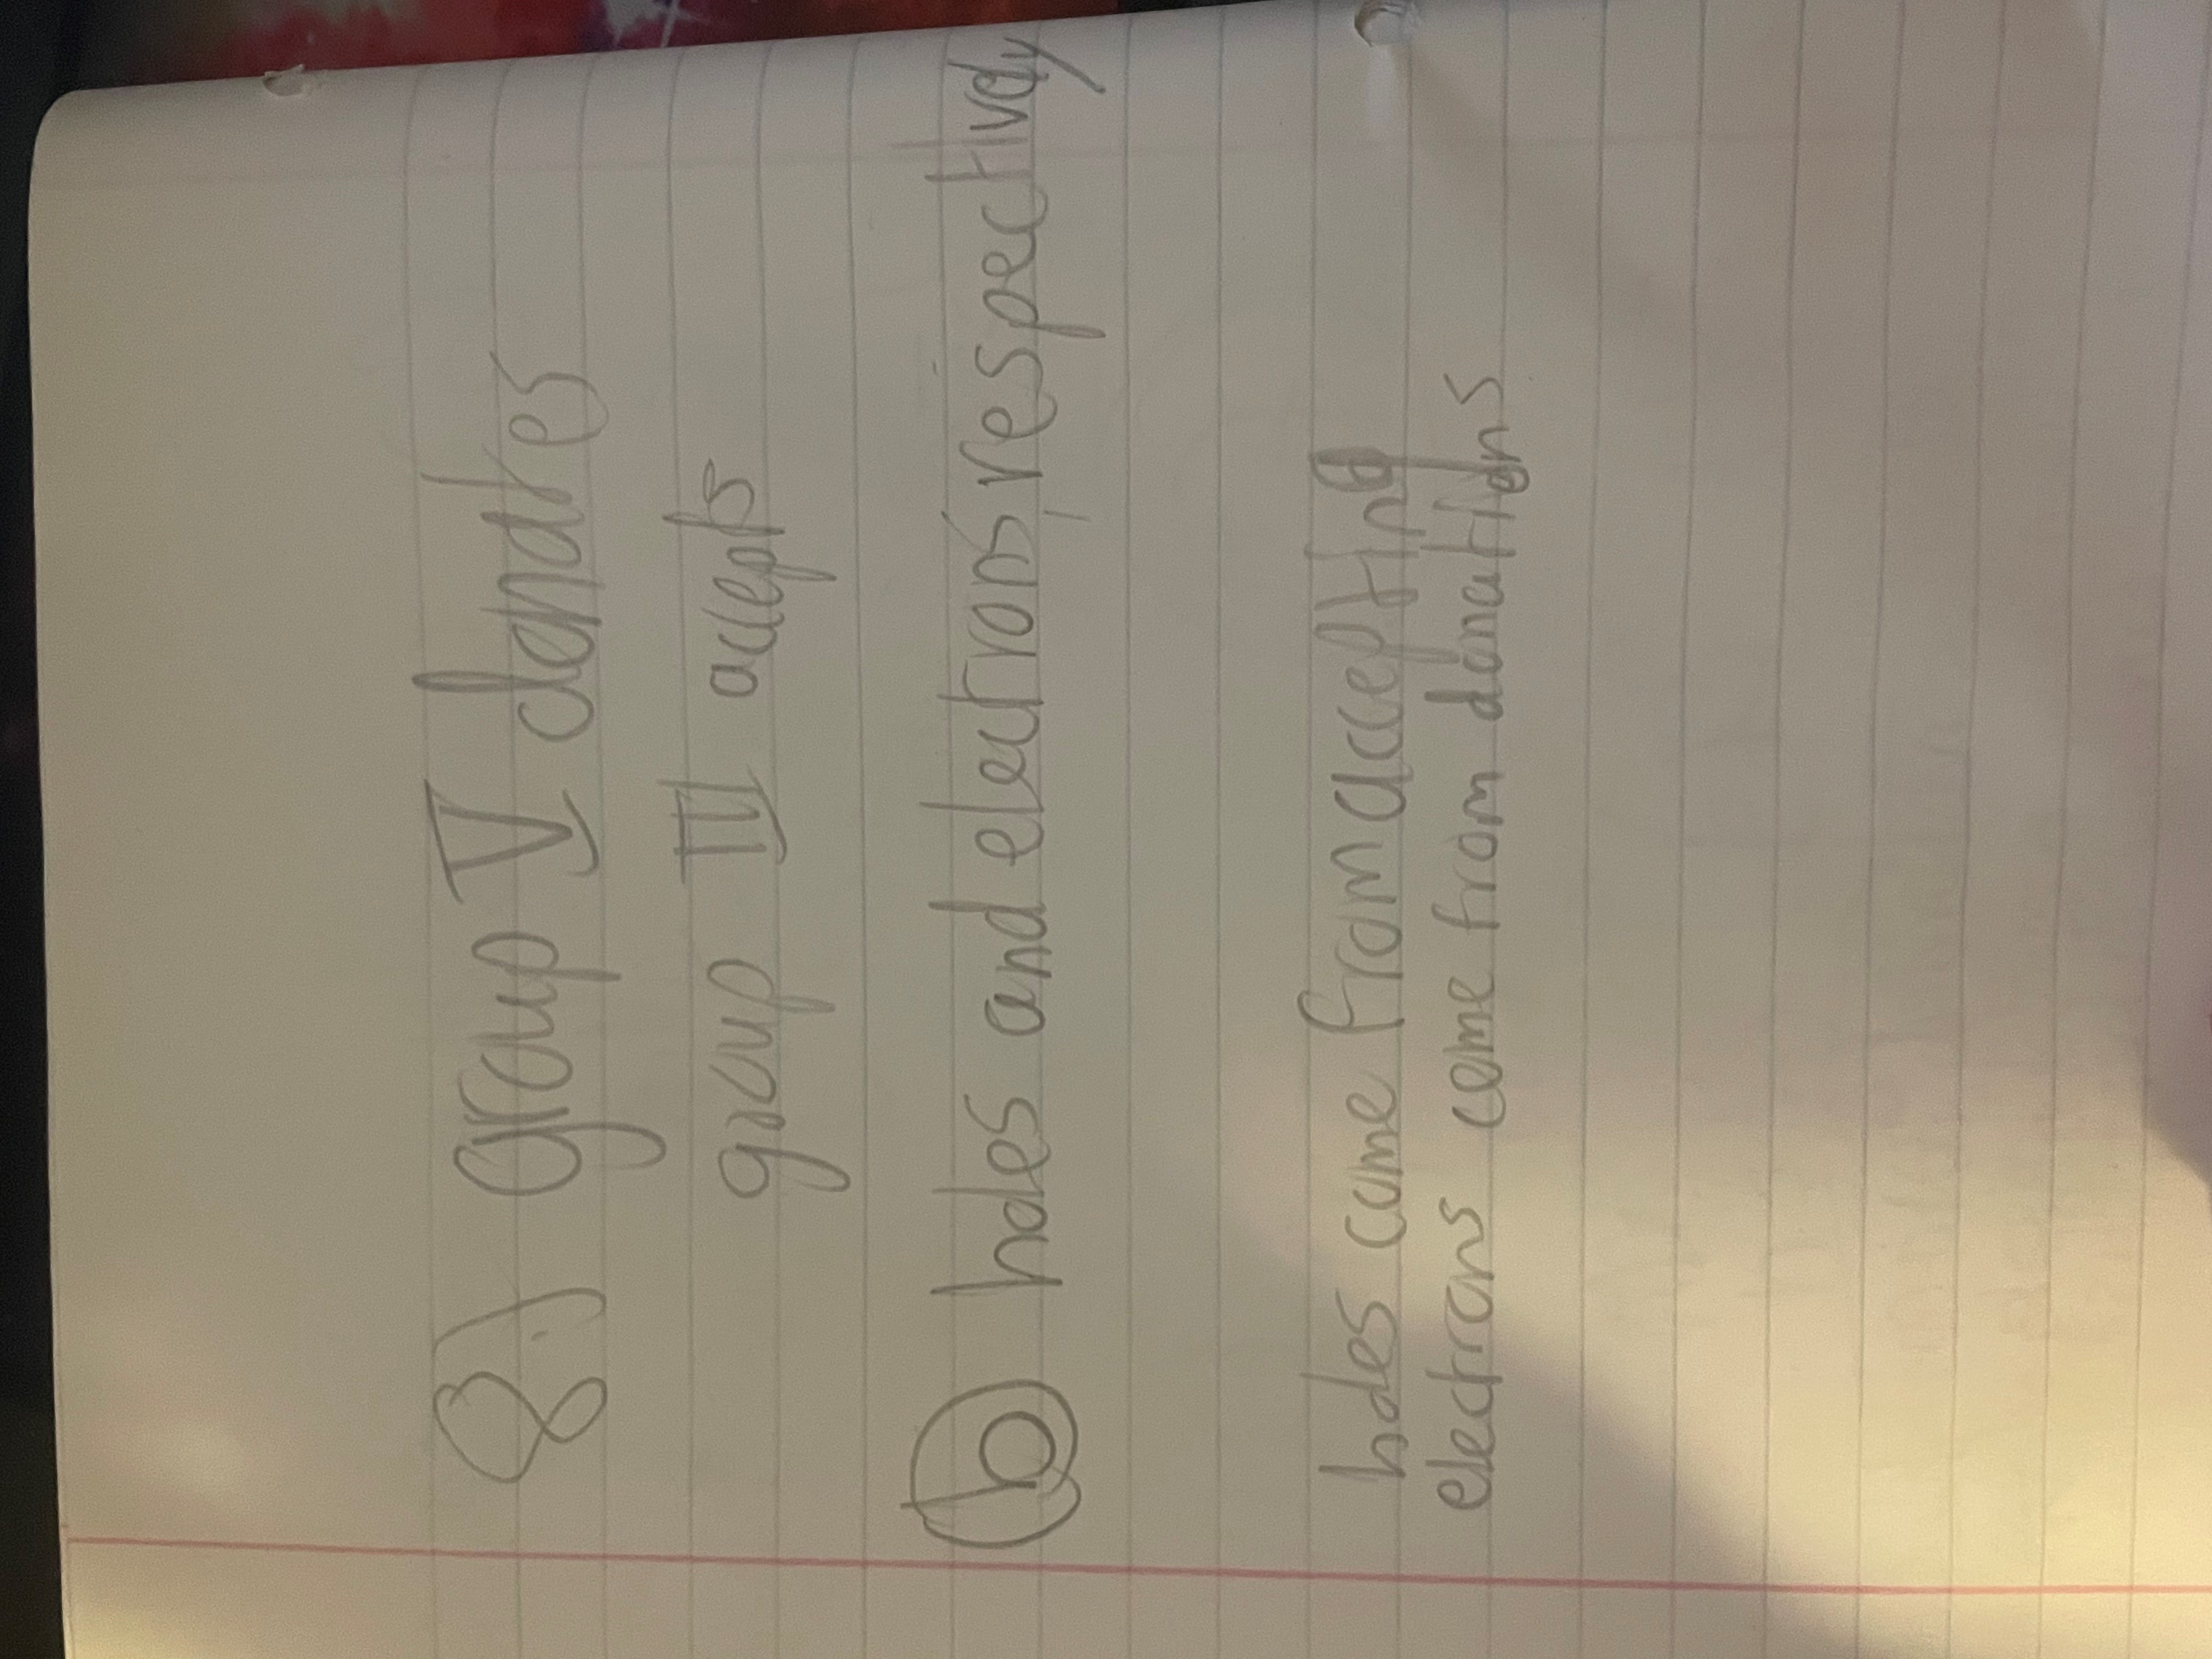 8.) group V donates
group III accepts
(b) holes and electrons, respectively
holes come from accepting
electrons come from donations